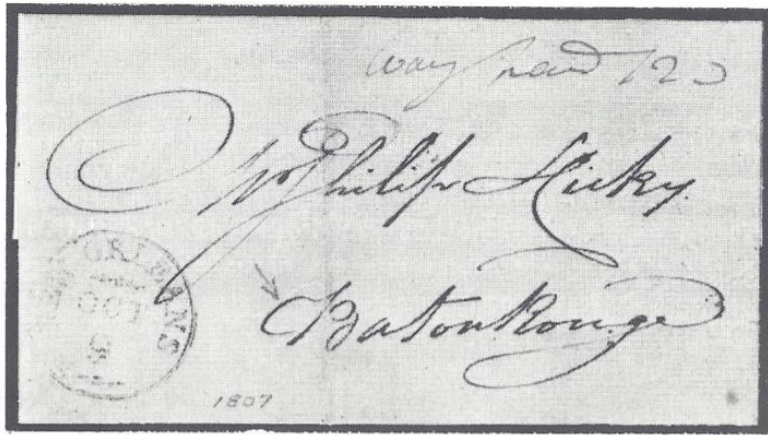 way paid 12
Mr Philip Hicky
Baton Rouge
NEW ORLEANS
OCT
1807